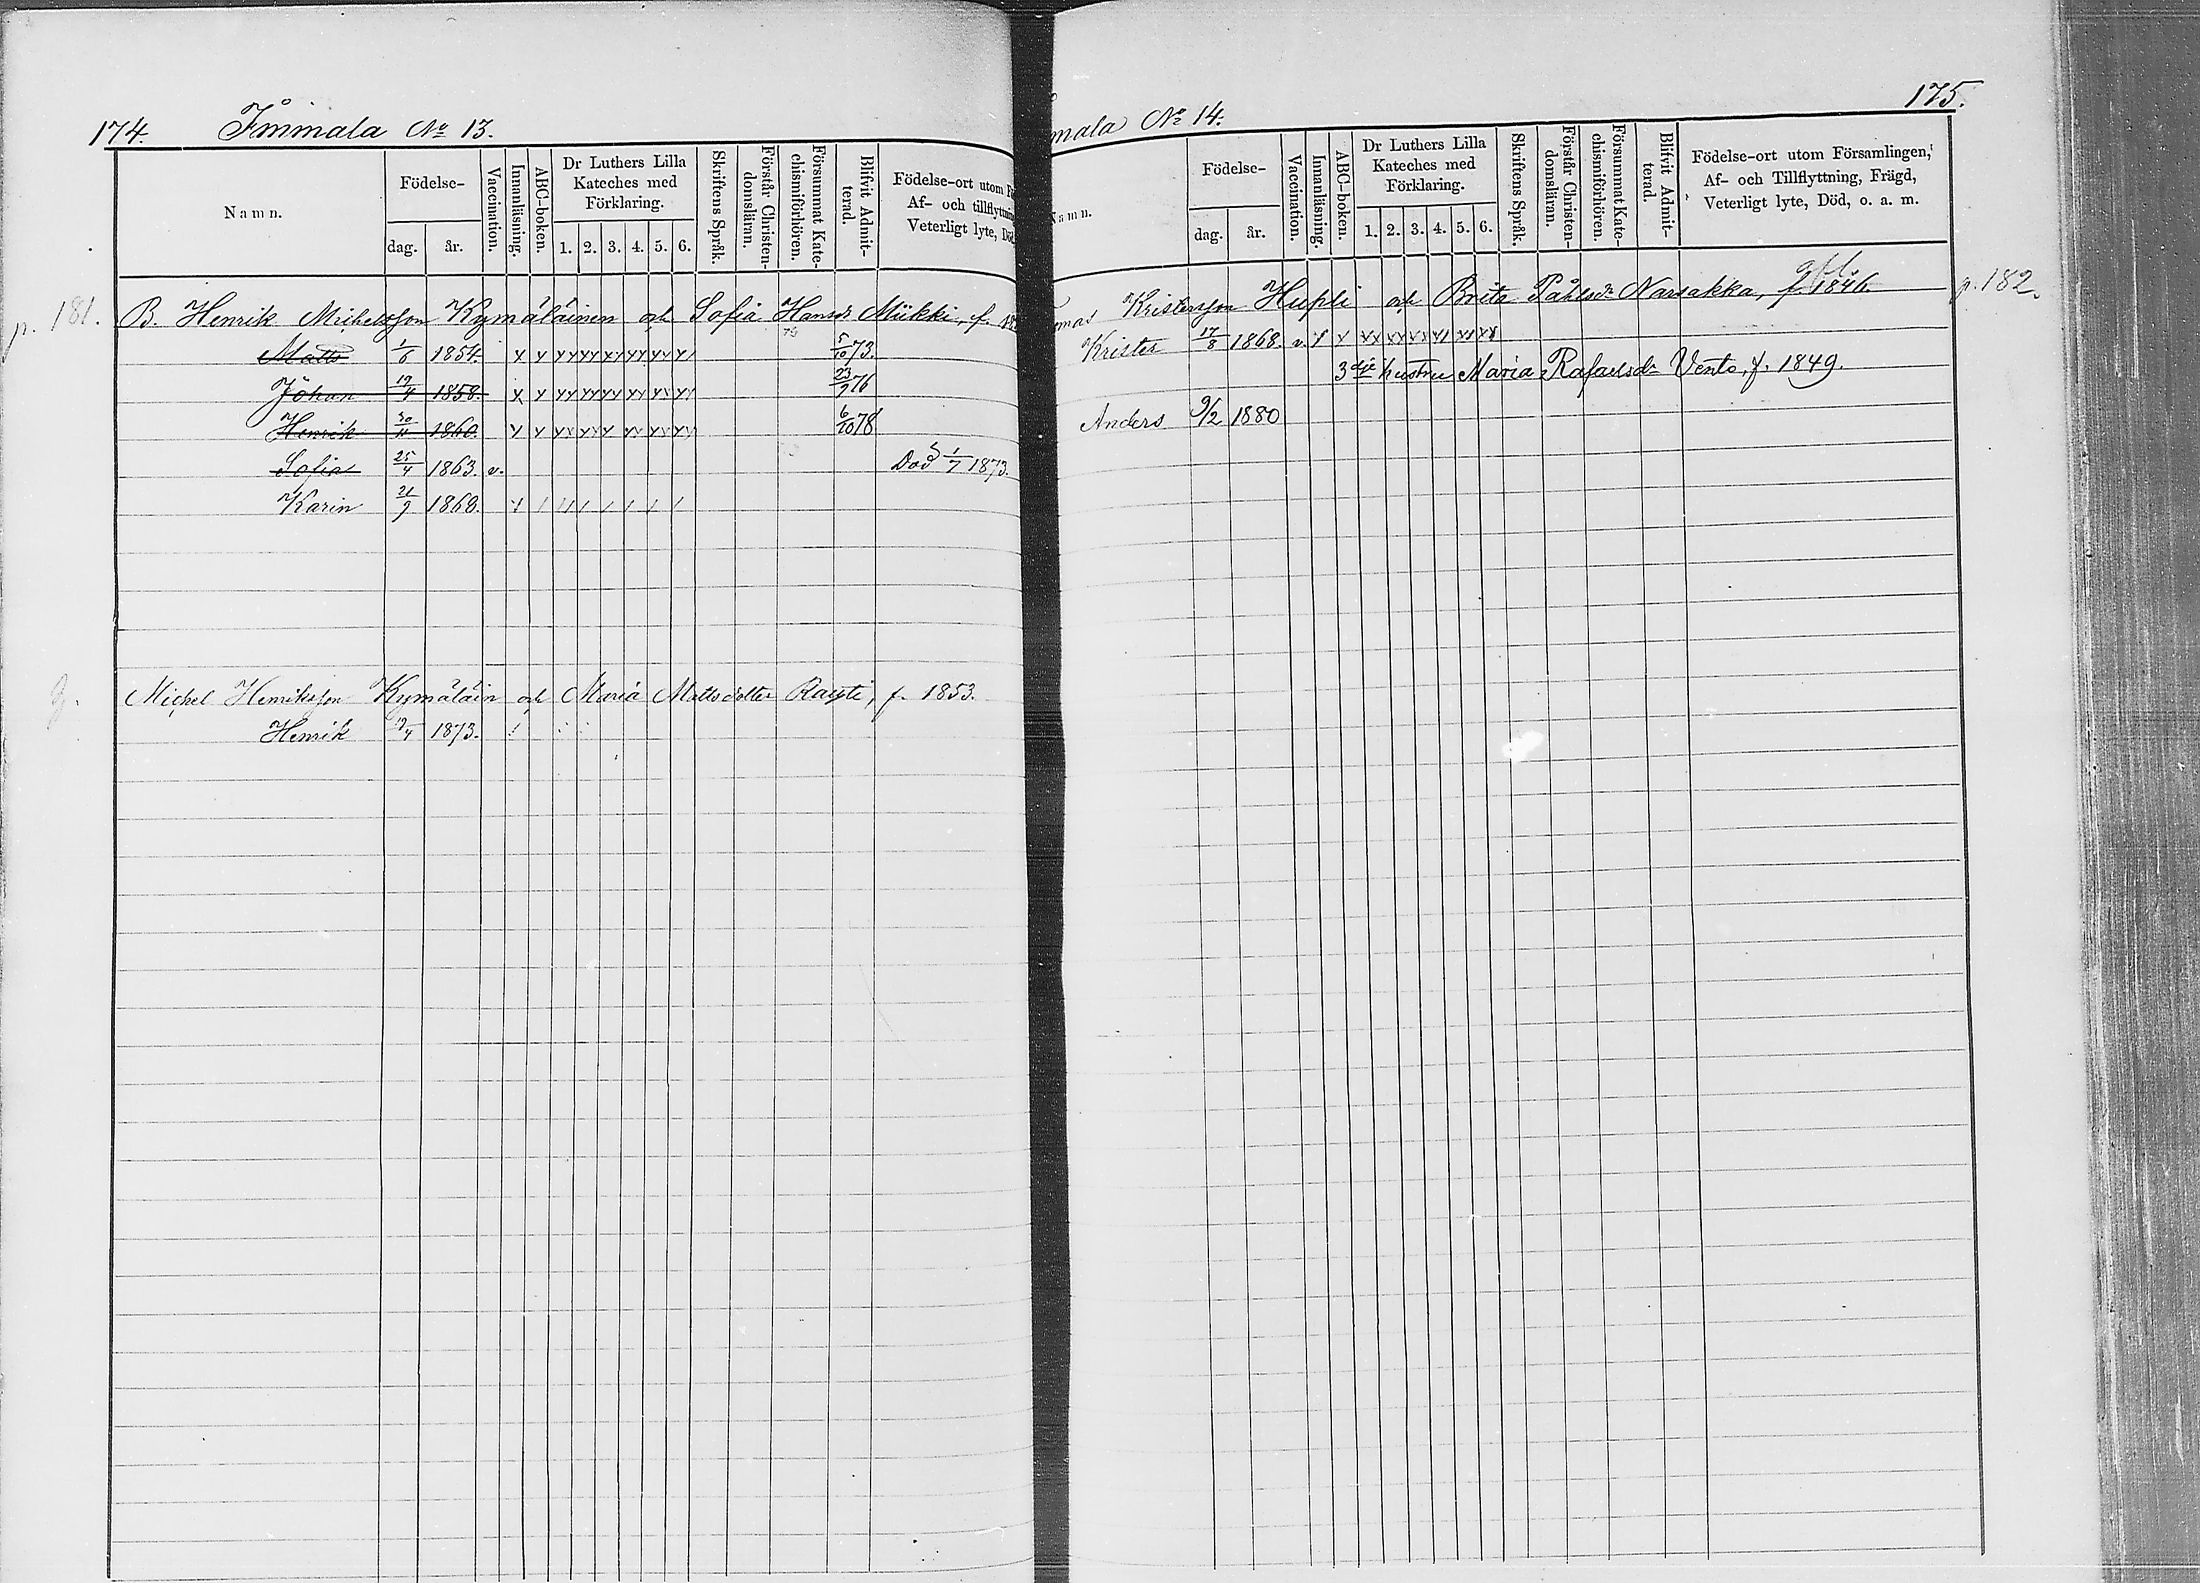 174. Immala No 13.
Namn.
Födelse-
dag.
år.
Vaccination.
Innanläsning.
ABC-boken.
Dr Luthers Lilla
Kateches med
Förklaring.
1. 2. 3. 4. 5. 6.
Skriftens Språk.
Förstår Christen-
domsläran.
Försummat Kate-
chismiförhören.
Blifvit Admit-
terad.
Födelse-ort utom
Af- och tillflyttning
Veterligt lyte, Död
p. 181. B. Henrik Michelsson Kymäläinen och Sofia Hansdr Miikki, f.
Matts 1/6 1854. x x xx xx xx xx xx xx 5/10 73.
Johan 19/4 1858. x x xx xx xx xx xx xx 23/9 76
Henrik 30/11 1860. x x xx xx xx xx xx xx 6/10 78
Sofia 25/4 1863. v. Död 1/7 1873.
Karin 21/9 1868. x / // / / / / /
Michel Henriksson Kymäläin och Maria Mattsdotter Rayti, f. 1853.
Henrik 19/4 1873.
175.
mala No 14.
Namn.
Födelse-
dag.
år.
Vaccination.
Innanläsning.
ABC-boken.
Dr Luthers Lilla
Kateches med
Förklaring.
1. 2. 3. 4. 5. 6.
Skriftens Språk.
Förstår Christen-
domsläran.
Försummat Kate-
chismiförhören.
Blifvit Admit-
terad.
Födelse-ort utom Församlingen,
Af- och Tillflyttning, Frägd,
Veterligt lyte, Död, o. a. m.
omas Kristersson Hupli och Brita Påhlsdr Narsakka, f. 1846. p. 182.
Krister 17/8 1868. v. x x xx xx xx xx xx xx
3dje hustru Maria Rafaelsdr Vento, f. 1849.
Anders 9/2 1880